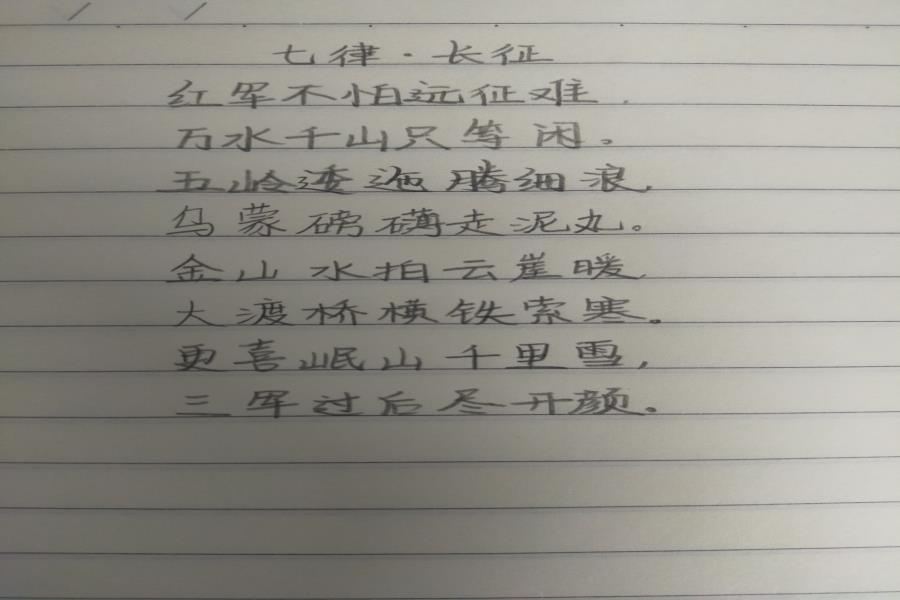 七律·长征
红军不怕远征难,
万水千山只等闲。
五岭逶迤腾细浪,
乌蒙磅礴走泥丸。
金山水拍云崖暖,
大渡桥横铁索寒。
更喜岷山千里雪,
三军过后尽开颜。